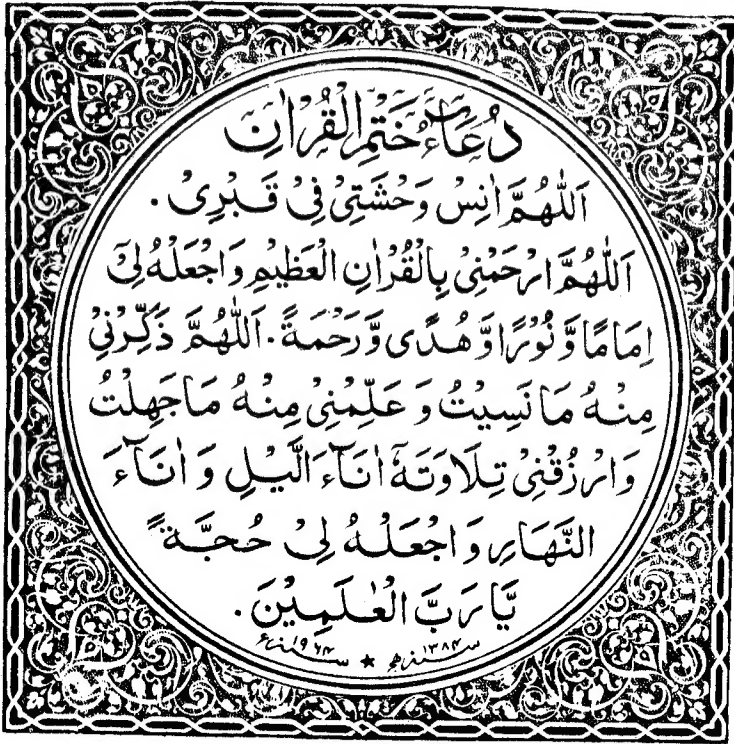 دُعَاءُ خَتْمِ الْقُرْاٰنِ
اَللّٰهُمَّ اٰنِسْ وَحْشَتِيْ فِيْ قَبْرِيْ .
اَللّٰهُمَّ ارْحَمْنِيْ بِالْقُرْاٰنِ الْعَظِيْمِ وَاجْعَلْهُ لِيْٓ
اِمَامًا وَّ نُوْرًا وَّ هُدًى وَّ رَحْمَةً . اَللّٰهُمَّ ذَكِّرْنِيْ
مِنْهُ مَا نَسِيْتُ وَ عَلِّمْنِيْ مِنْهُ مَا جَهِلْتُ
وَارْزُقْنِيْ تِلَاوَتَهٗٓ اٰنَآءَ الَّيْلِ وَ اٰنَآءَ
النَّهَارِ وَاجْعَلْهُ لِيْ حُجَّةً
يَّا رَبَّ الْعٰلَمِيْنَ .
سنہ ۱۳۸۴ھ ★ سنہ ۱۹۶۴ء